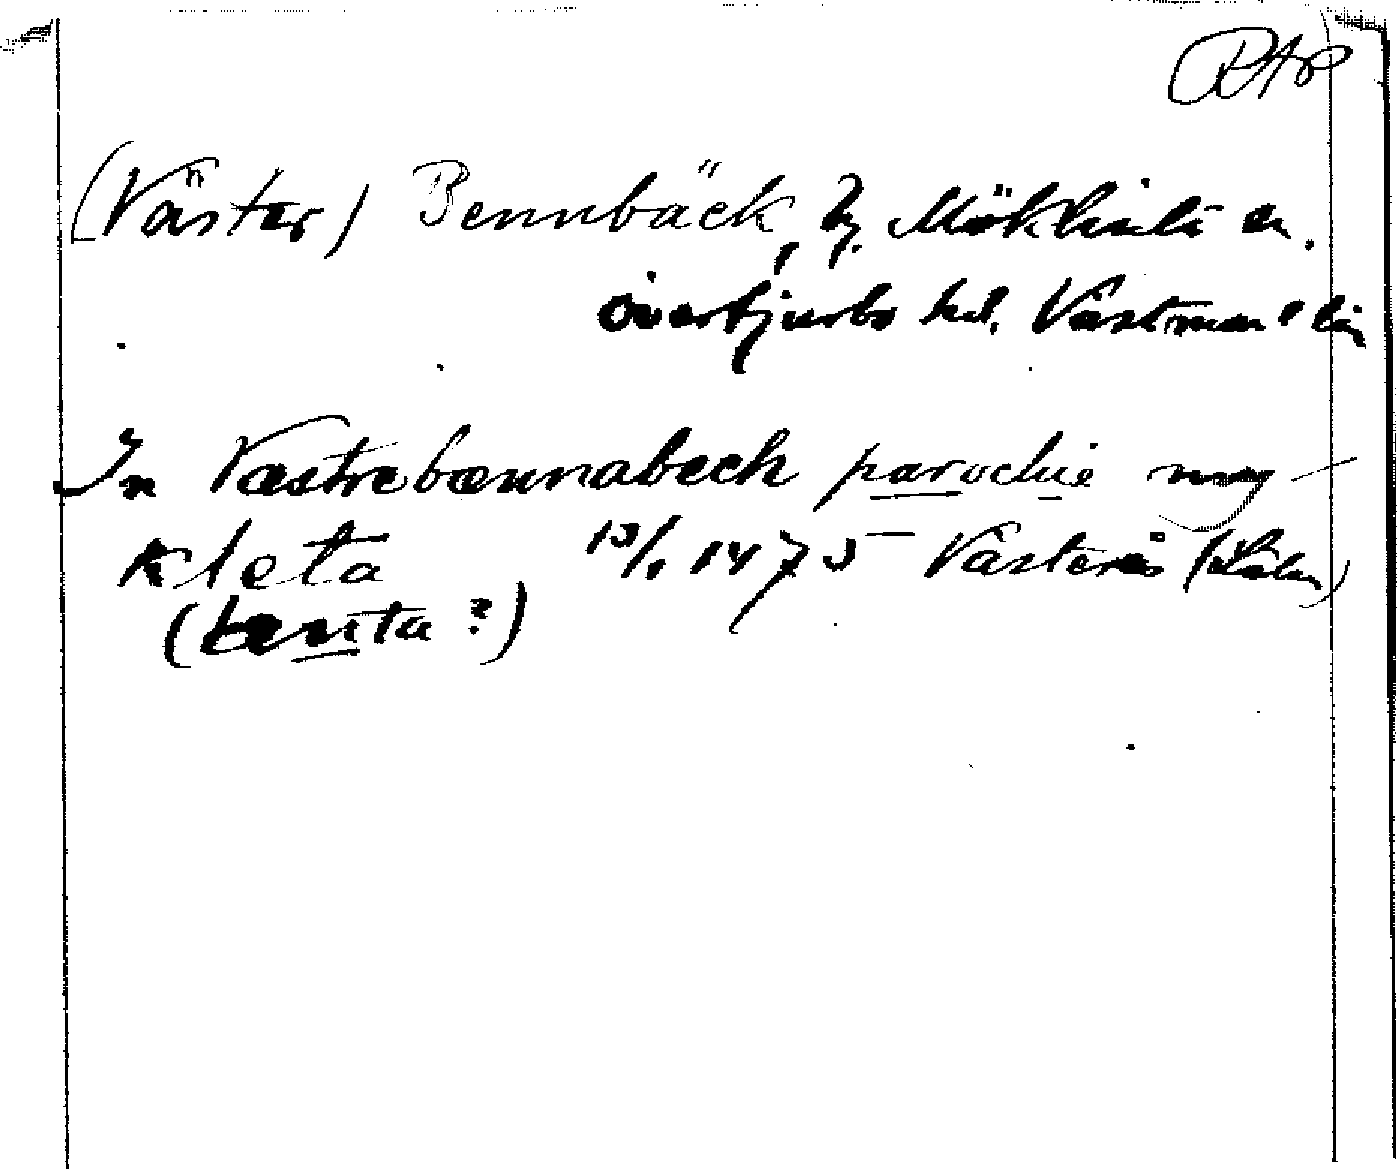 RAP
(Väster) Bennbäck, by, Möklinta sn.
Övertjurbo hd. Västmanl. län
In Væstrebænnabeck parochie my-
kleta 13/1 1475 Västerås
(lenta ?)